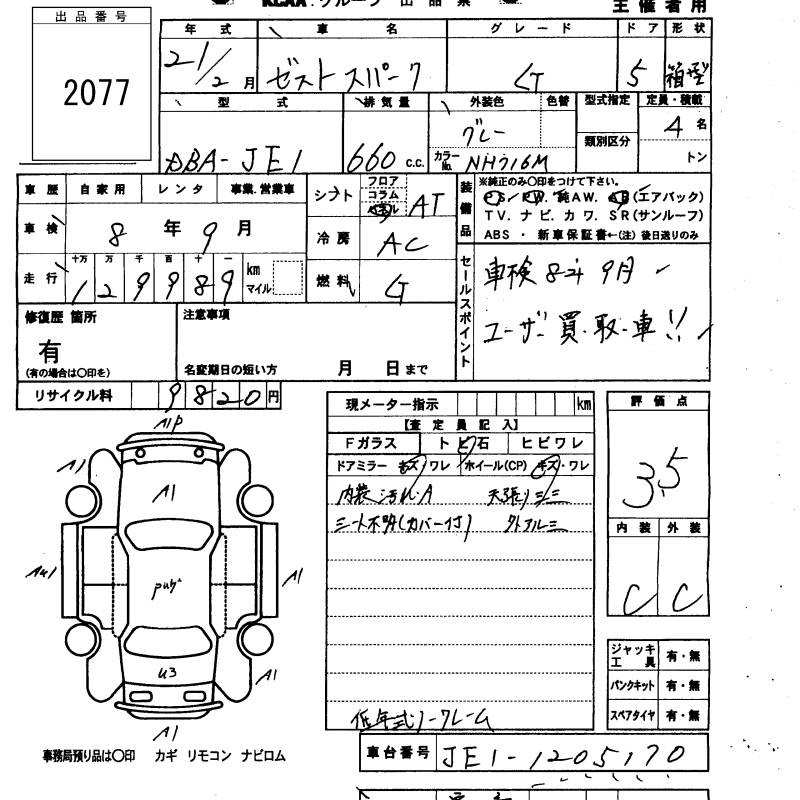 KCAA.グループ 出品票
主催者用
出品番号
2077
年式 車名 グレード ドア 形状
21/2月 ゼスト スパーク G 5 箱型
型式 排気量 外装色 色替 型式指定 定員・積載
DBA-JE1 660 c.c. グレー カラーNo. NH716M 類別区分 4名 トン
車歴 自家用 レンタ 事業.営業車
車検 8年9月
走行 十万 万 千 百 十 一
129989 km マイル
シフト フロア コラム AT
冷房 AC
燃料 G
装備品
※純正のみ〇印をつけて下さい。
PS/PW. 純AW. AB(エアバック)
TV. ナビ. カワ. SR(サンルーフ)
ABS ・ 新車保証書←(注) 後日送りのみ
セールスポイント
車検8年9月
ユーザー買・取・車!!
修復歴 箇所
有
(有の場合は〇印を)
注意事項
名変期日の短い方 月 日まで
リサイクル料 9820円
現メーター指示 km
【査定員記入】
Fガラス トビ石 ヒビワレ
ドアミラー キズ/ワレ ホイール(CP) キズ・ワレ
内装汚れ・A 天張りシミ
シート不明(カバー付) 外アルミ
低年式ノークレーム
評価点
3.5
内装 外装
C C
ジャッキ工具 有・無
パンクキット 有・無
スペアタイヤ 有・無
A1P
A1
A1
A1
A1
U3
A1
A1
事務局預り品は〇印 カギ リモコン ナビロム
車台番号 JE1-1205170